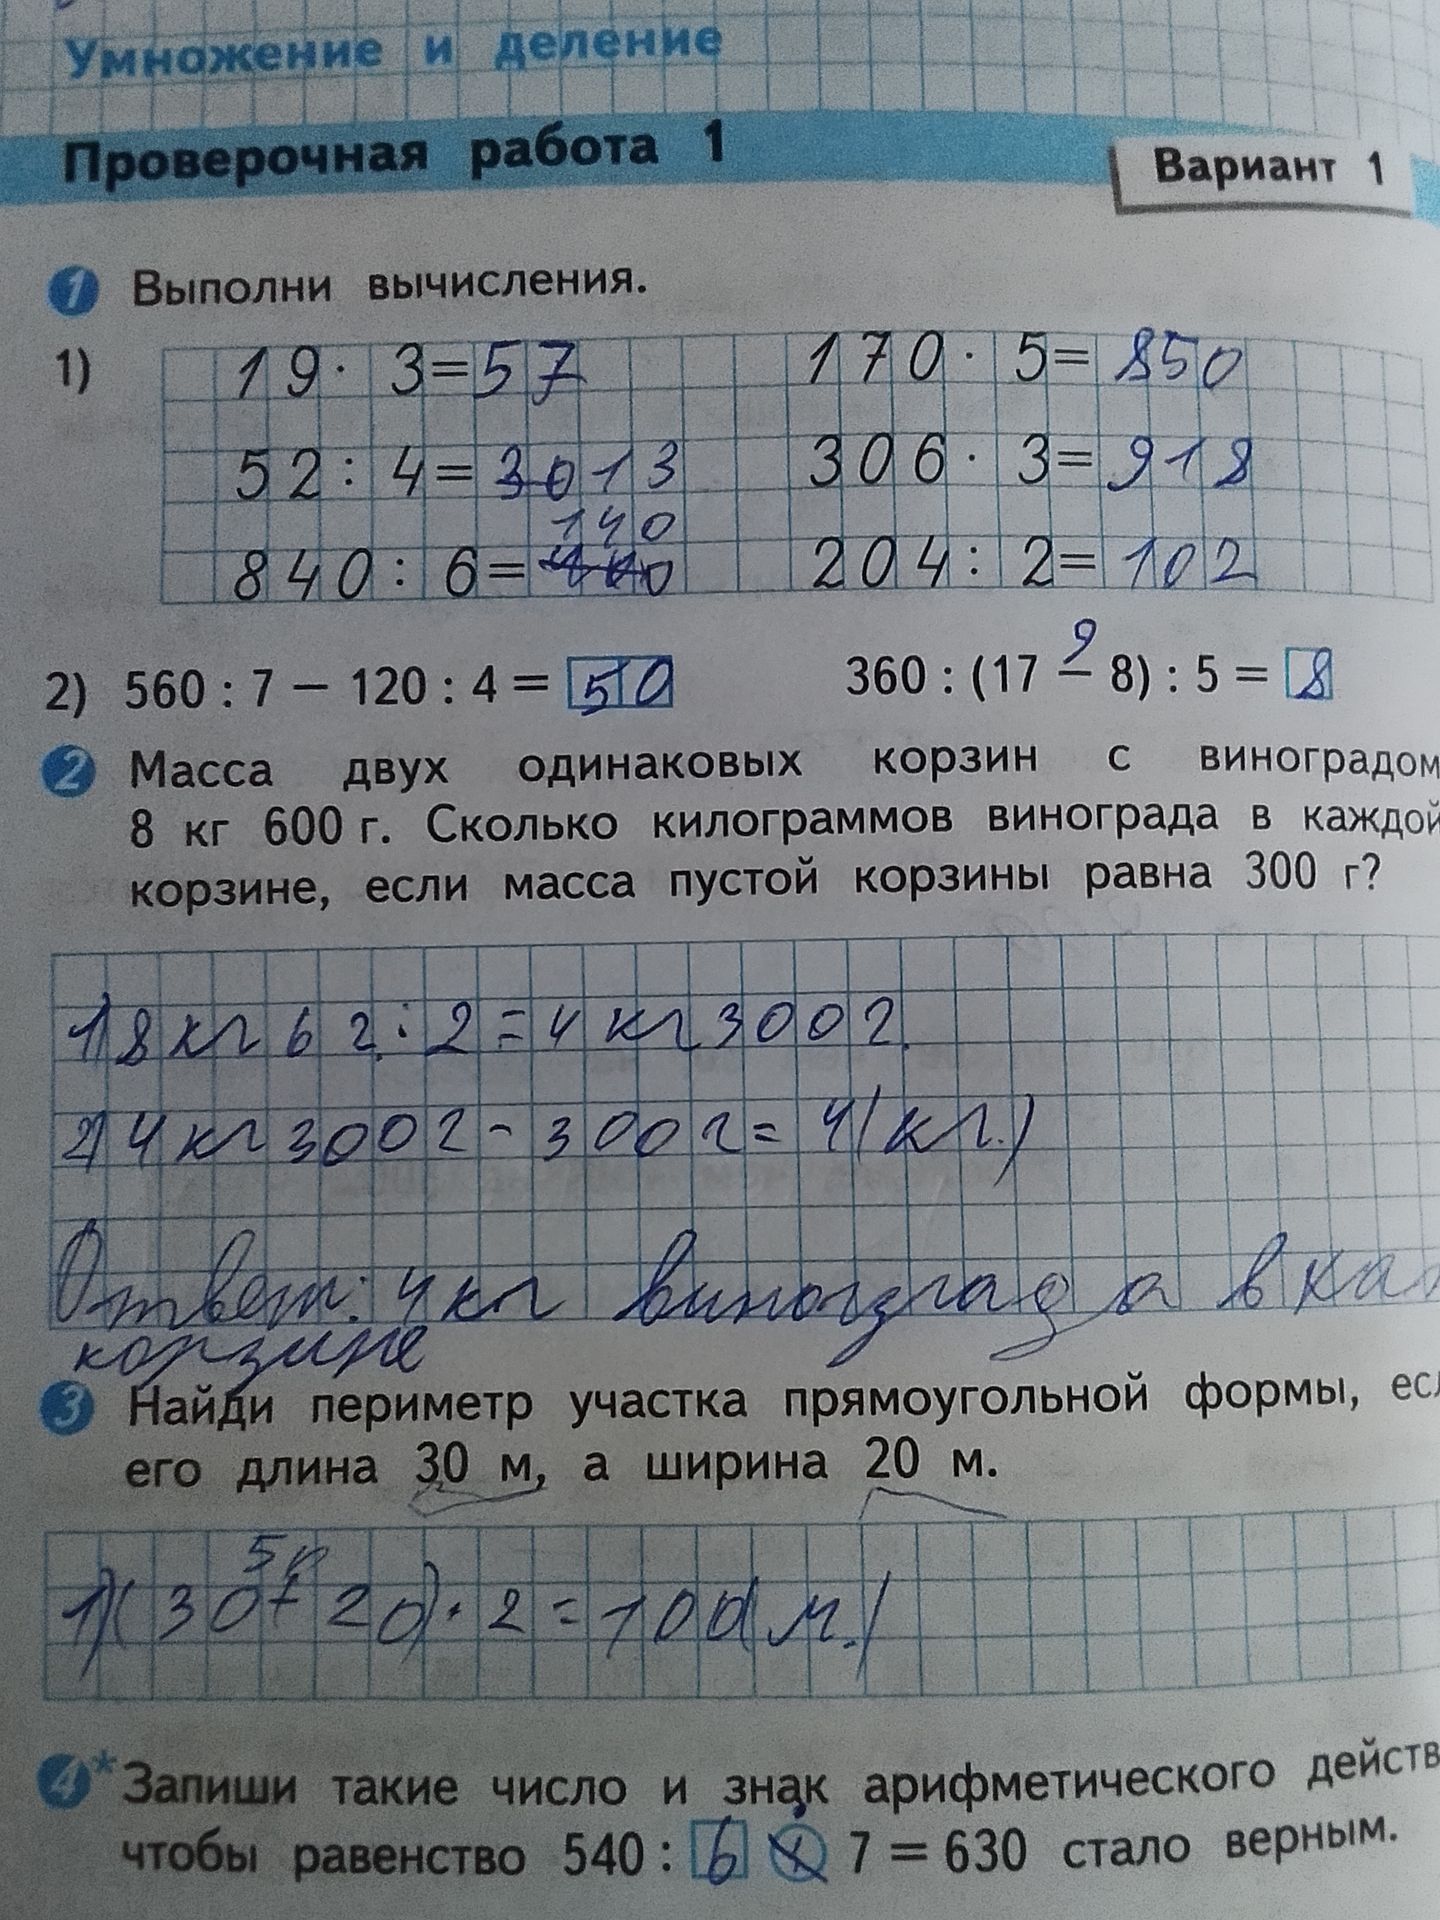 Умножение и деление
Проверочная работа 1
Вариант 1
1 Выполни вычисления.
1) 19 · 3 = 57 170 · 5 = 850
52 : 4 = 30 13 306 · 3 = 918
140
840 : 6 = 204 : 2 = 102
9
2) 560 : 7 − 120 : 4 = 50 360 : (17 − 8) : 5 = 8
2 Масса двух одинаковых корзин с виноградом
8 кг 600 г. Сколько килограммов винограда в каждой
корзине, если масса пустой корзины равна 300 г?
1) 8 кг 6 г. : 2 = 4 кг 300 г.
2) 4 кг 300 г - 300 г = 4 (кг.)
Ответ: 4 кг винограда в ка
корзине
3 Найди периметр участка прямоугольной формы, есл
его длина 30 м, а ширина 20 м.
50
1) (30 + 20) · 2 = 100 (м.)
4* Запиши такие число и знак арифметического действ
чтобы равенство 540 : 6 7 = 630 стало верным.